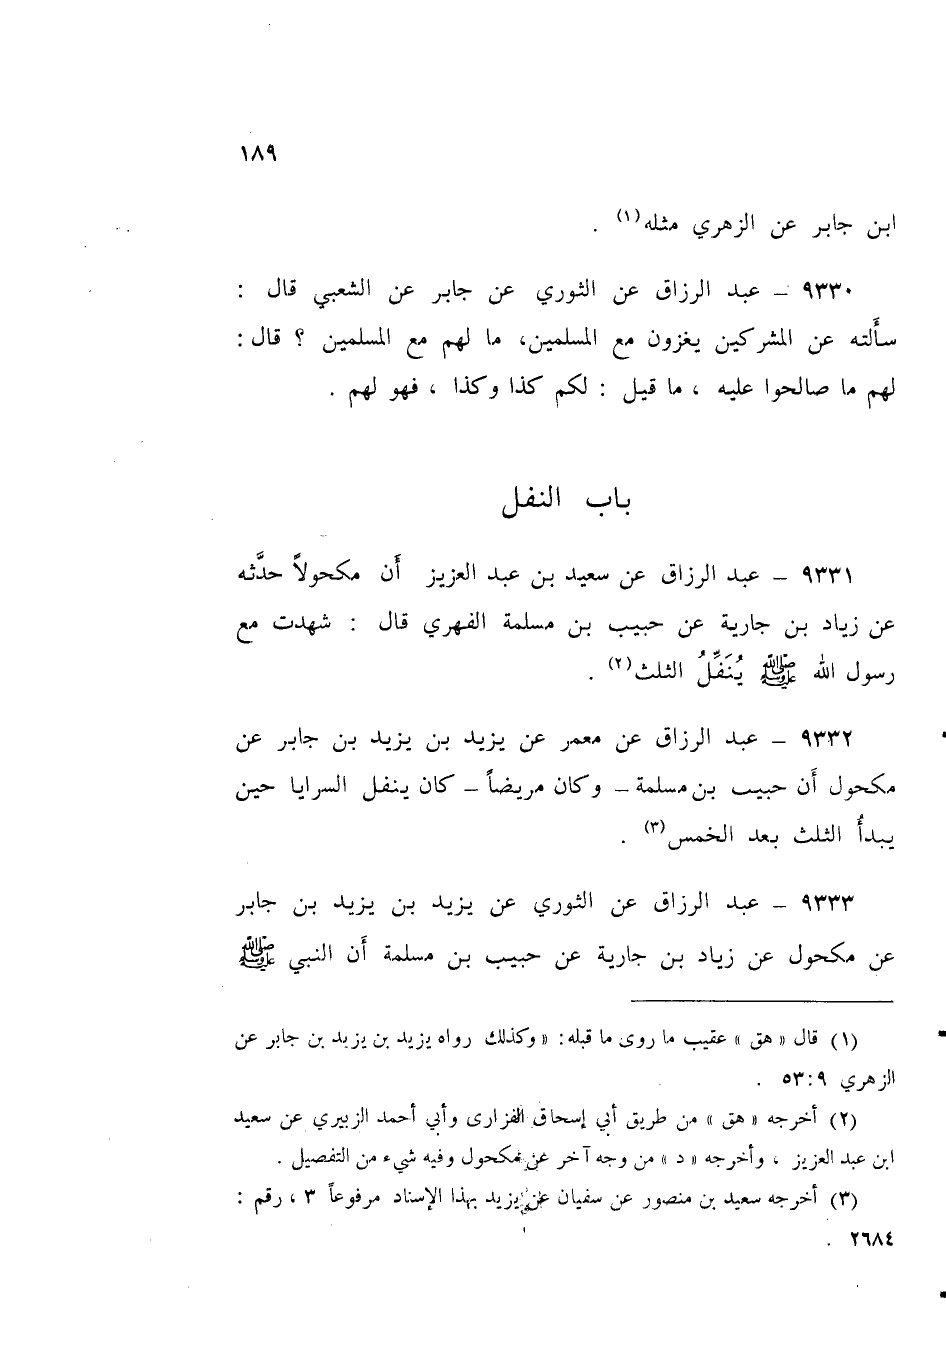 ١٨٩
ابن جابر عن الزهري مثله(١) .
٩٣٣٠ – عبد الرزاق عن الثوري عن جابر عن الشعبي قال :
سأَلته عن المشركين يغزون مع المسلمين، ما لهم مع المسلمين ؟ قال :
لهم ما صالحوا عليه ، ما قيل : لكم كذا وكذا ، فهو لهم .
باب النفل
٩٣٣١ – عبد الرزاق عن سعيد بن عبد العزيز أَن مكحولاً حدَّثه
عن زياد بن جارية عن حبيب بن مسلمة الفهري قال : شهدت مع
رسول الله ﷺ يُنَفِّلُ الثلث(٢) .
٩٣٣٢ – عبد الرزاق عن معمر عن يزيد بن يزيد بن جابر عن
مكحول أَن حبيب بن مسلمة – وكان مريضاً – كان ينفل السرايا حين
يبدأُ الثلث بعد الخمس(٣) .
٩٣٣٣ – عبد الرزاق عن الثوري عن يزيد بن يزيد بن جابر
عن مكحول عن زياد بن جارية عن حبيب بن مسلمة أَن النبي ﷺ
(١) قال « هق » عقيب ما روى ما قبله : « وكذلك رواه يزيد بن يزيد بن جابر عن
الزهري ٩ : ٥٣ .
(٢) أخرجه « هق » من طريق أبي إسحاق الفزارى وأبي أحمد الزبيري عن سعيد
ابن عبد العزيز ، وأخرجه « د » من وجه آخر عن مكحول وفيه شيء من التفصيل .
(٣) أخرجه سعيد بن منصور عن سفيان عن يزيد بهذا الإسناد مرفوعاً ٣ ، رقم :
٢٦٨٤ .